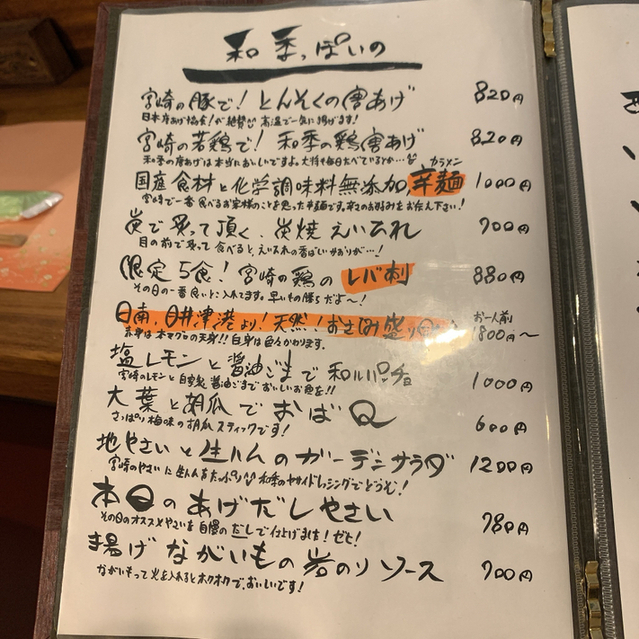 和季っぽいの
宮崎の豚で！とんそくの唐あげ 820円
日本唐あげ協会！が絶賛！！高温で一気に揚げます！
宮崎の若鶏で！和季の鶏唐あげ 820円
和季の唐あげは本当においしいですよ。大将も毎日たべているとか…
カラメン
国産食材と化学調味料無添加辛麺 1000円
宮崎で一番食べるお客様のことを思った辛麺です。辛さのお好みをお伝え下さい！
炭で炙って頂く、炭焼えいひれ 700円
目の前で炙って食べるとえいひれの香ばしいかおりが…！
限定5食！宮崎の鶏のレバ刺 880円
その日の一番良いトコ入れてます。早いもの勝ちだよ〜！
お一人前
日南、目井津港より！天然！おさしみ盛り 1800円〜
赤身は本マグロの天身！！白身は色々かわります。
塩レモンと醤油ごまで和ルパッチョ 1000円
宮崎のレモンと自家製醤油ごまでおいしいお魚を！！
大葉と胡瓜でおばQ 600円
さっぱり梅味の胡瓜スティックです！
地やさいと生ハムのガーデンサラダ 1200円
宮崎のやさいに生ハムをたっぷり！！和季のヤサイドレッシングでどうぞ！
本日のあげだしやさい 780円
その日のオススメやさいを自慢のだしで仕上げました！ぜヒ！
揚げながいもの岩のりソース 700円
ながいもって火を入れるとホクホクで、おいしいです！